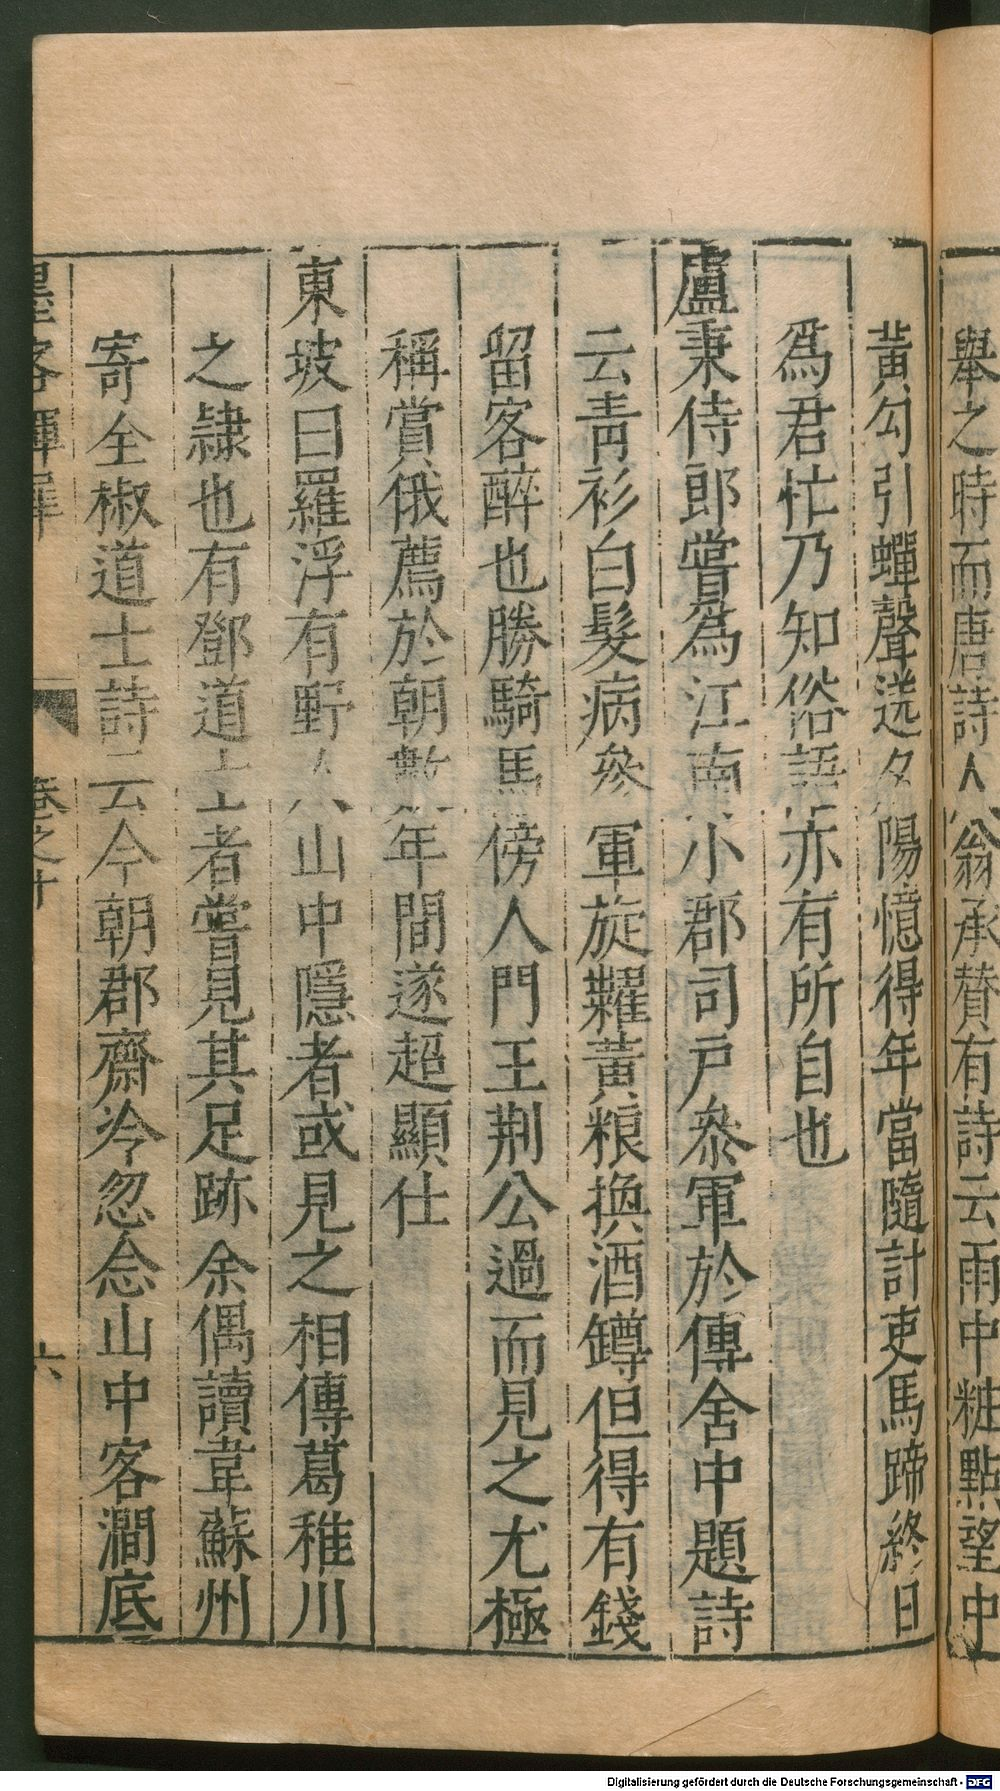 舉之時而唐詩人翁承贊有詩云雨中粧點望中
黃勾引蟬聲送夕陽憶得年當隨計吏馬蹄終日
爲君忙乃知俗語亦有所自也
盧秉侍郎嘗爲江南小郡司戶叅軍於傳舍中題詩
云靑衫白髮病叅軍旋糶黃粮換酒罇但得有錢
留客醉也勝騎馬傍人門王荆公過而見之尤極
稱賞俄薦於朝數年間遂超顯仕
東坡曰羅浮有野人山中隱者或見之相傳葛稚川
之隷也有鄧道士者嘗見其足跡余偶讀韋蘇州
寄全椒道士詩云今朝郡齋冷忽念山中客澗底
墨客揮犀 卷之十 六
Digitalisierung gefördert durch die Deutsche Forschungsgemeinschaft - DFG